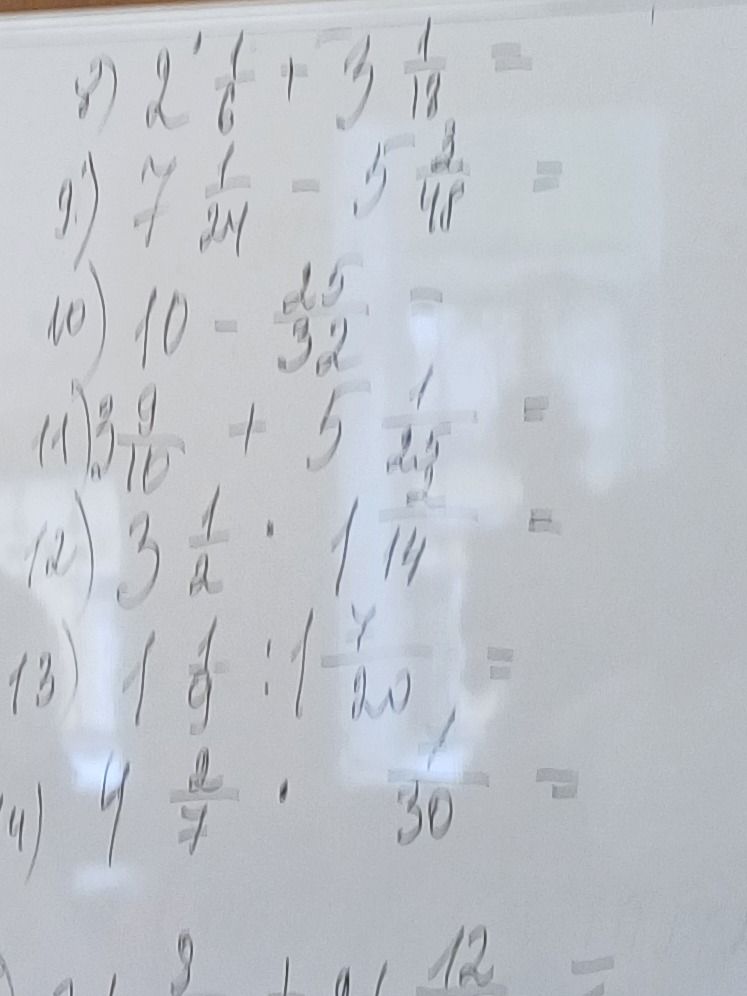 8) 2 1/6 + 3 1/18 =
9) 7 1/24 - 5 3/48 =
10) 10 - 25/32 =
11) 3 9/10 + 5 1/25 =
12) 3 1/2 · 1 2/14 =
13) 1 1/9 : 1 7/20 =
4) 4 2/7 · 1/30 =
12 =